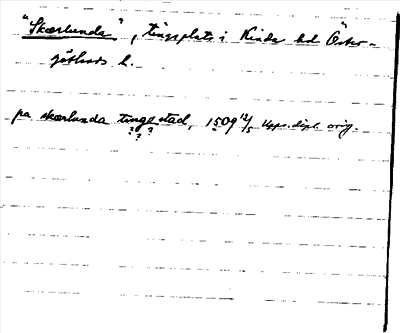 "Skærlunda", tingsplats i Kinda hd Öster-
götlands l.
pa skærlunda tingxstad, 1509 12/5 Upps. dipl. orig.
? ? ?